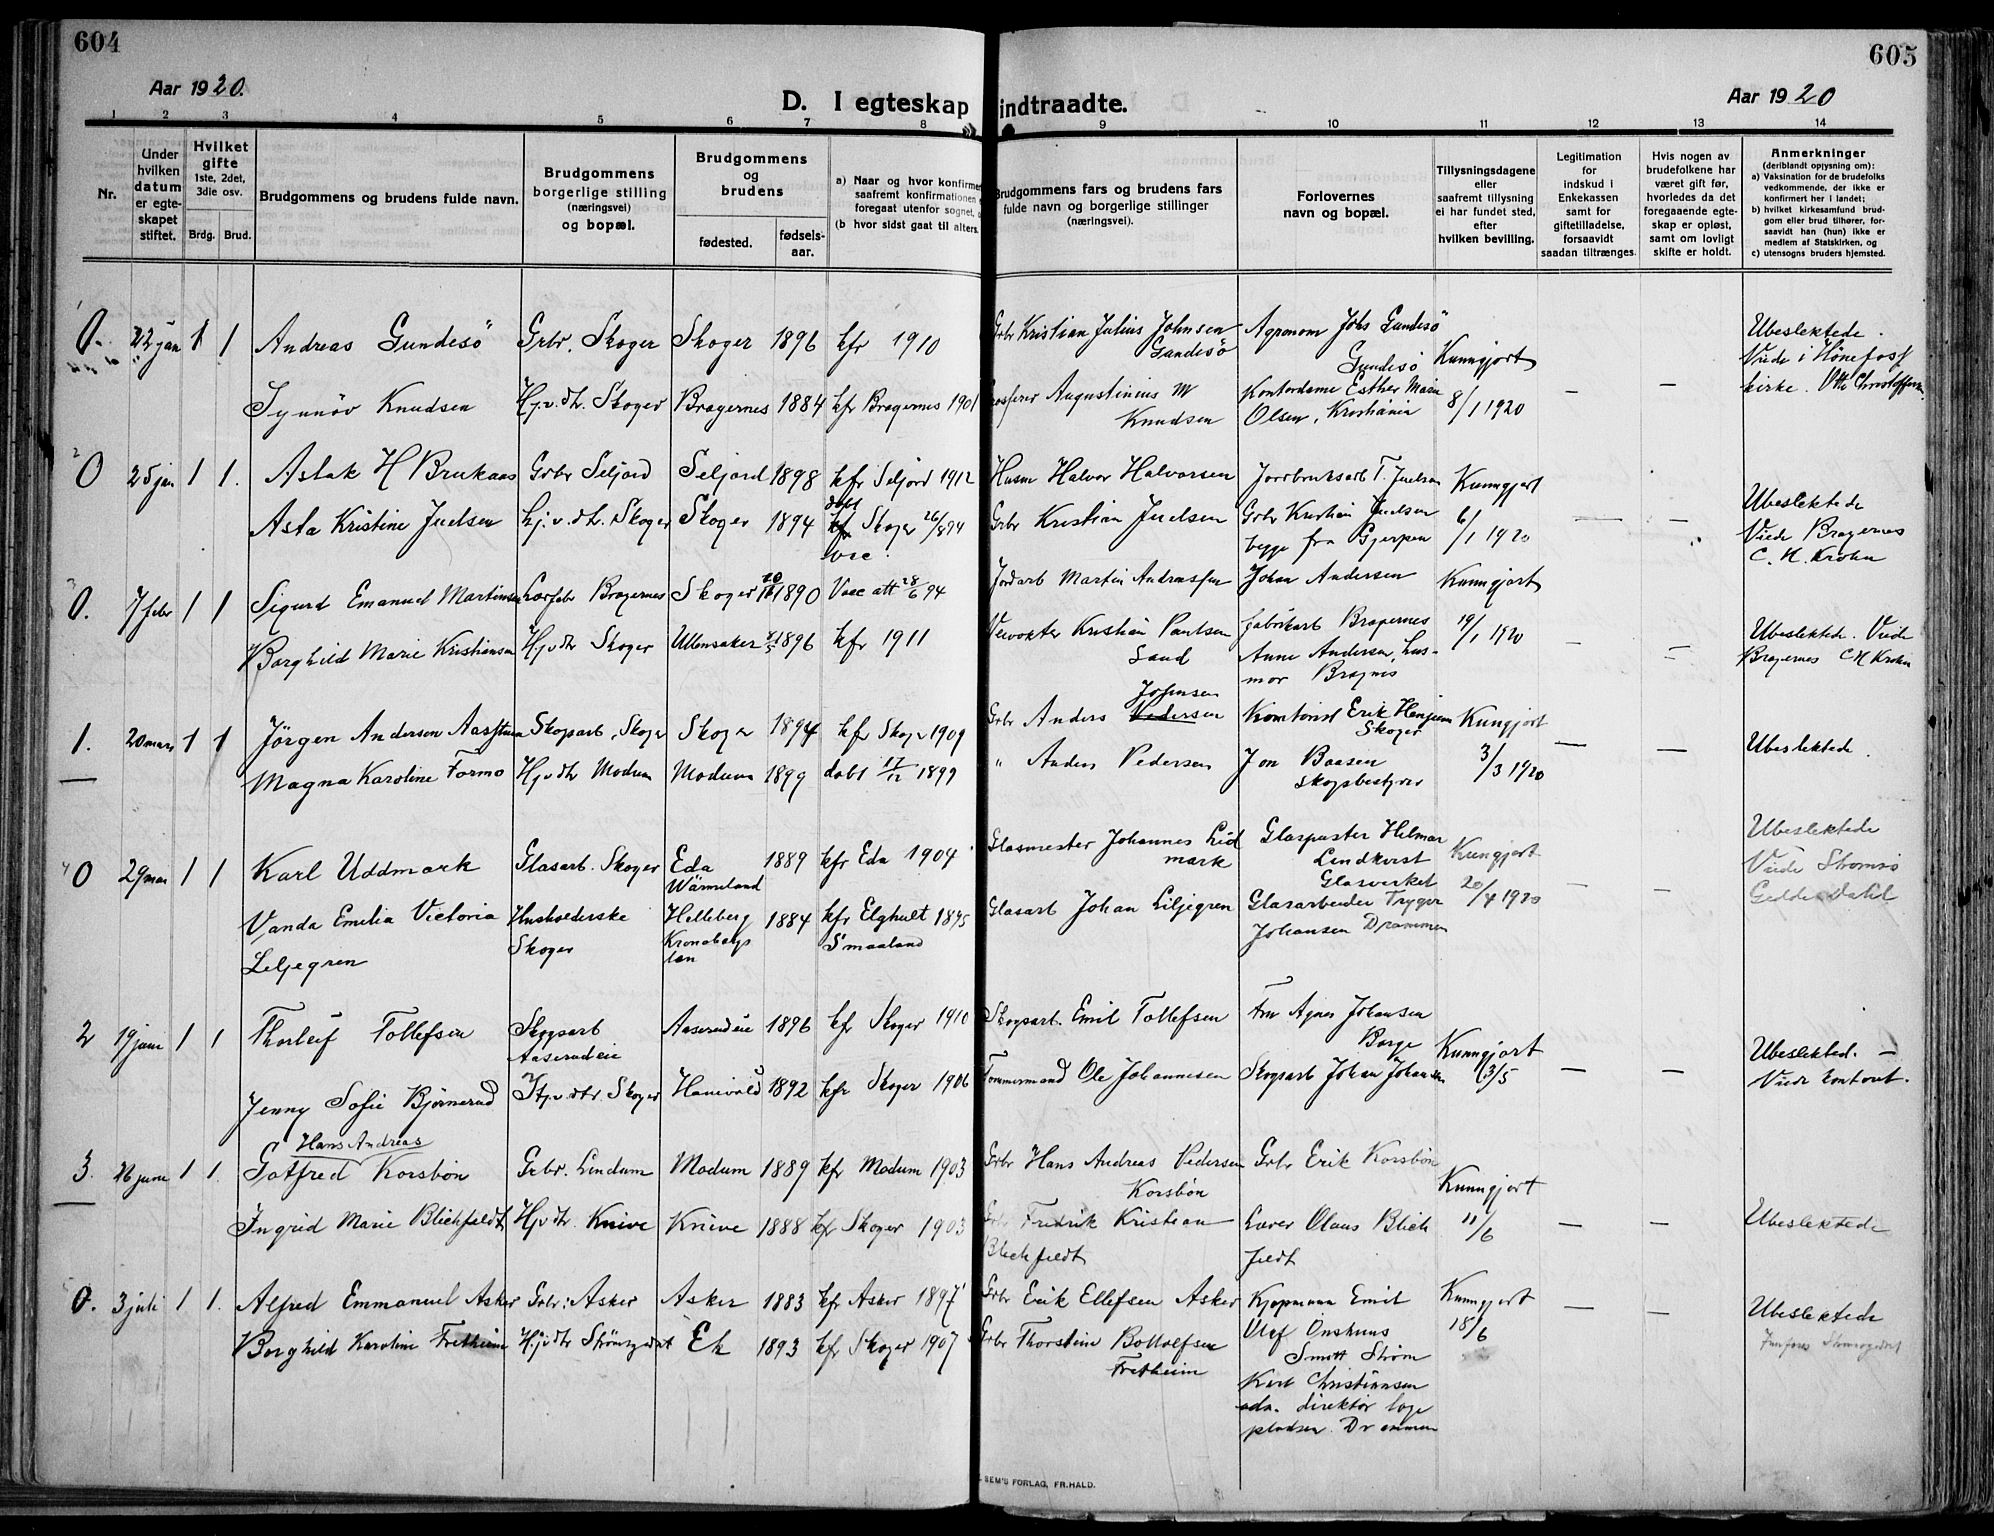 604
605
Aar 1920.
Aar 1920
D. I egteskap indtraadte.
1 2 3 4 5 6 7 8 9 10 11 12 13 14
Nr.
Under hvilken datum er egteskapet stiftet.
Hvilket gifte 1ste, 2det, 3die osv.
Brdg. Brud.
Brudgommens og brudens fulde navn.
Brudgommens borgerlige stilling (næringsvei) og bopæl.
Brudgommens og brudens
fødested.
fødselsaar.
a) Naar og hvor konfirmert saafremt konfirmationen foregaat utenfor sognet,
(b hvor sidst gaat til alters.
Brudgommens fars og brudens fars fulde navn og borgerlige stillinger (næringsvei).
Forlovernes navn og bopæl.
Tillysningsdagene eller saafremt tillysning ei har fundet sted, efter hvilken bevilling.
Legitimation for indskud i Enkekassen samt for giftetilladelse, forsaavidt saadan tiltrænges.
Hvis nogen av brudefolkene har været gift før, hvorledes da det foregaaende egteskap er opløst, samt om lovligt skifte er holdt.
Anmerkninger (deriblandt opjysning om):
a) Vaksination for de brudefolks vedkommende, der ikke er konfirmert her i landet;
b) hvilket kirkesamfund brudgom eller brud tilhører, forsaavidt han (hun) ikke er medlem af Statskirken, og
c) utensogns bruders hjemsted.
0. 22 jan 1 1 Andreas Gundesö Grbr. Skoger Skoger 1896 kfr 1910 Grbr Kristian Julius Johnsen Gundesö Agronom Johs Gundesö Gundesö Kunngjort 8/1 1920 Ubeslektede. Viede i Hönefoss kirke.
Synnöv Knudsen Hj.v.dtr. Skoger Bragernes 1884 kfr Bragernes 1901 Augustinius M Knudsen Kontordame Esther Marie Olsen, Kristiania — —
0 25 jan 1 1. Aslak H Brukaas Grbr Seljord Seljord 1898 kfr Seljord 1912 Husm Halvor Halvorsen Jordbruksarb T. Juelsen Kunngjort 6/1 1920
Asta Kristine Juelsen Hj.v.dtr. Skoger Skoger 1894 döbt Skoger 26/8 94 vac. Grbr Kristian Juelsen Grbr Kristian Juelsen begge fra Gjerpen — — Ubeslektede Viede Bragernes C. H. Krohn
0. 7 febr 1 1 Sigurd Emanuel Martinsen Bragernes Skoger 1890 Vacc att 28/6 94 Jordarb Martin Andreassen Johan Andersen fabrikarb Bragernes Kunngjort 19/1 1920
Borghild Marie Kristiansen Hj.v.dtr Skoger Ullensaker 1896 kfr 1911 Kristian Paulsen Sand Anne Andersen, Husmor Bragnes — — Ubeslektede. Viede Bragernes C H Krohn
1. 20 mars 1 1 Jörgen Andersen Skogsarb, Skoger Skoger 1894 kfr Skoger 1909 Grbr Anders Johnsen Pedersen Kontorist Erik Skoger Kungjort 3/3 1920
Magna Karoline Formo Hj.v.dtr Modum Modum 1899 döbt 17/12 1899 " Anders Pedersen Jon Baasen Skogsbestyrer — — Ubeslektede.
0 29 1 1 Karl Uddmark Glasarb. Skoger Eda Wärmeland 1889 kfr Eda 1904 Glasmester Johannes Uddmark Glaspuster Hilmar Lindkvist Glasverket Kungjort 20/4 1920 Ubeslektede Viede Strömsö Gedde Dahl
Vanda Emilia Victoria Liljegren Husholderske Skoger Helleberg Kronobergs län 1884 kfr Elghult Smaaland Glasarb Johan Liljegren Glasarbeider Trygve Johansen Drammen — —
2 19 juni 1 1 Thorleif Tollefsen Skogsarb Aaserudeie Aaserudeie 1896 kfr Skoger 1910 Skogsarb. Emil Tollefsen Fru Agnes Johansen Borge Kunngjort 3/5
Jenny Sofie Björnerud Hj.v.dtr. Skoger Hanevold 1892 kfr Skoger 1906 Tömmermand Ole Johannesen Skogsarb Johan Johansen — — Ubeslekted. — Viede kontoret.
3. 26 juni 1 1. Hans Andreas Gotfred Korsbön Grbr. Lindum Modum 1889 kfr Modum 1903 Grbr Hans Andreas Pedersen Korsbön Grbr Erik Korsbön Kunngjort 11/6
Ingrid Marie Blichfeldt Hj.v.dtr. Knive Knive 1888 kfr Skoger 1903 Grbr Fredrik Kristian Blichfeldt Lærer Olaus Blichfeldt — — Ubeslektede
0. 3 juli 1 1. Alfred Emmanuel Asker Grbr: Asker Asker 1883 kfr Asker 1897 Grbr Erik Ellefsen Asker Kjøpmann Emil Kunngjort 18/6
Borghild Karoline Fretheim Hj.v.dtr Ek 1893 kfr Skoger 1907 Grbr Thorstein Bottolfsen Fretheim Smitt Strøm Karl Christiansen direktør Drammen — — Ubeslektede
SEM'S FORLAG, FR.HALD.